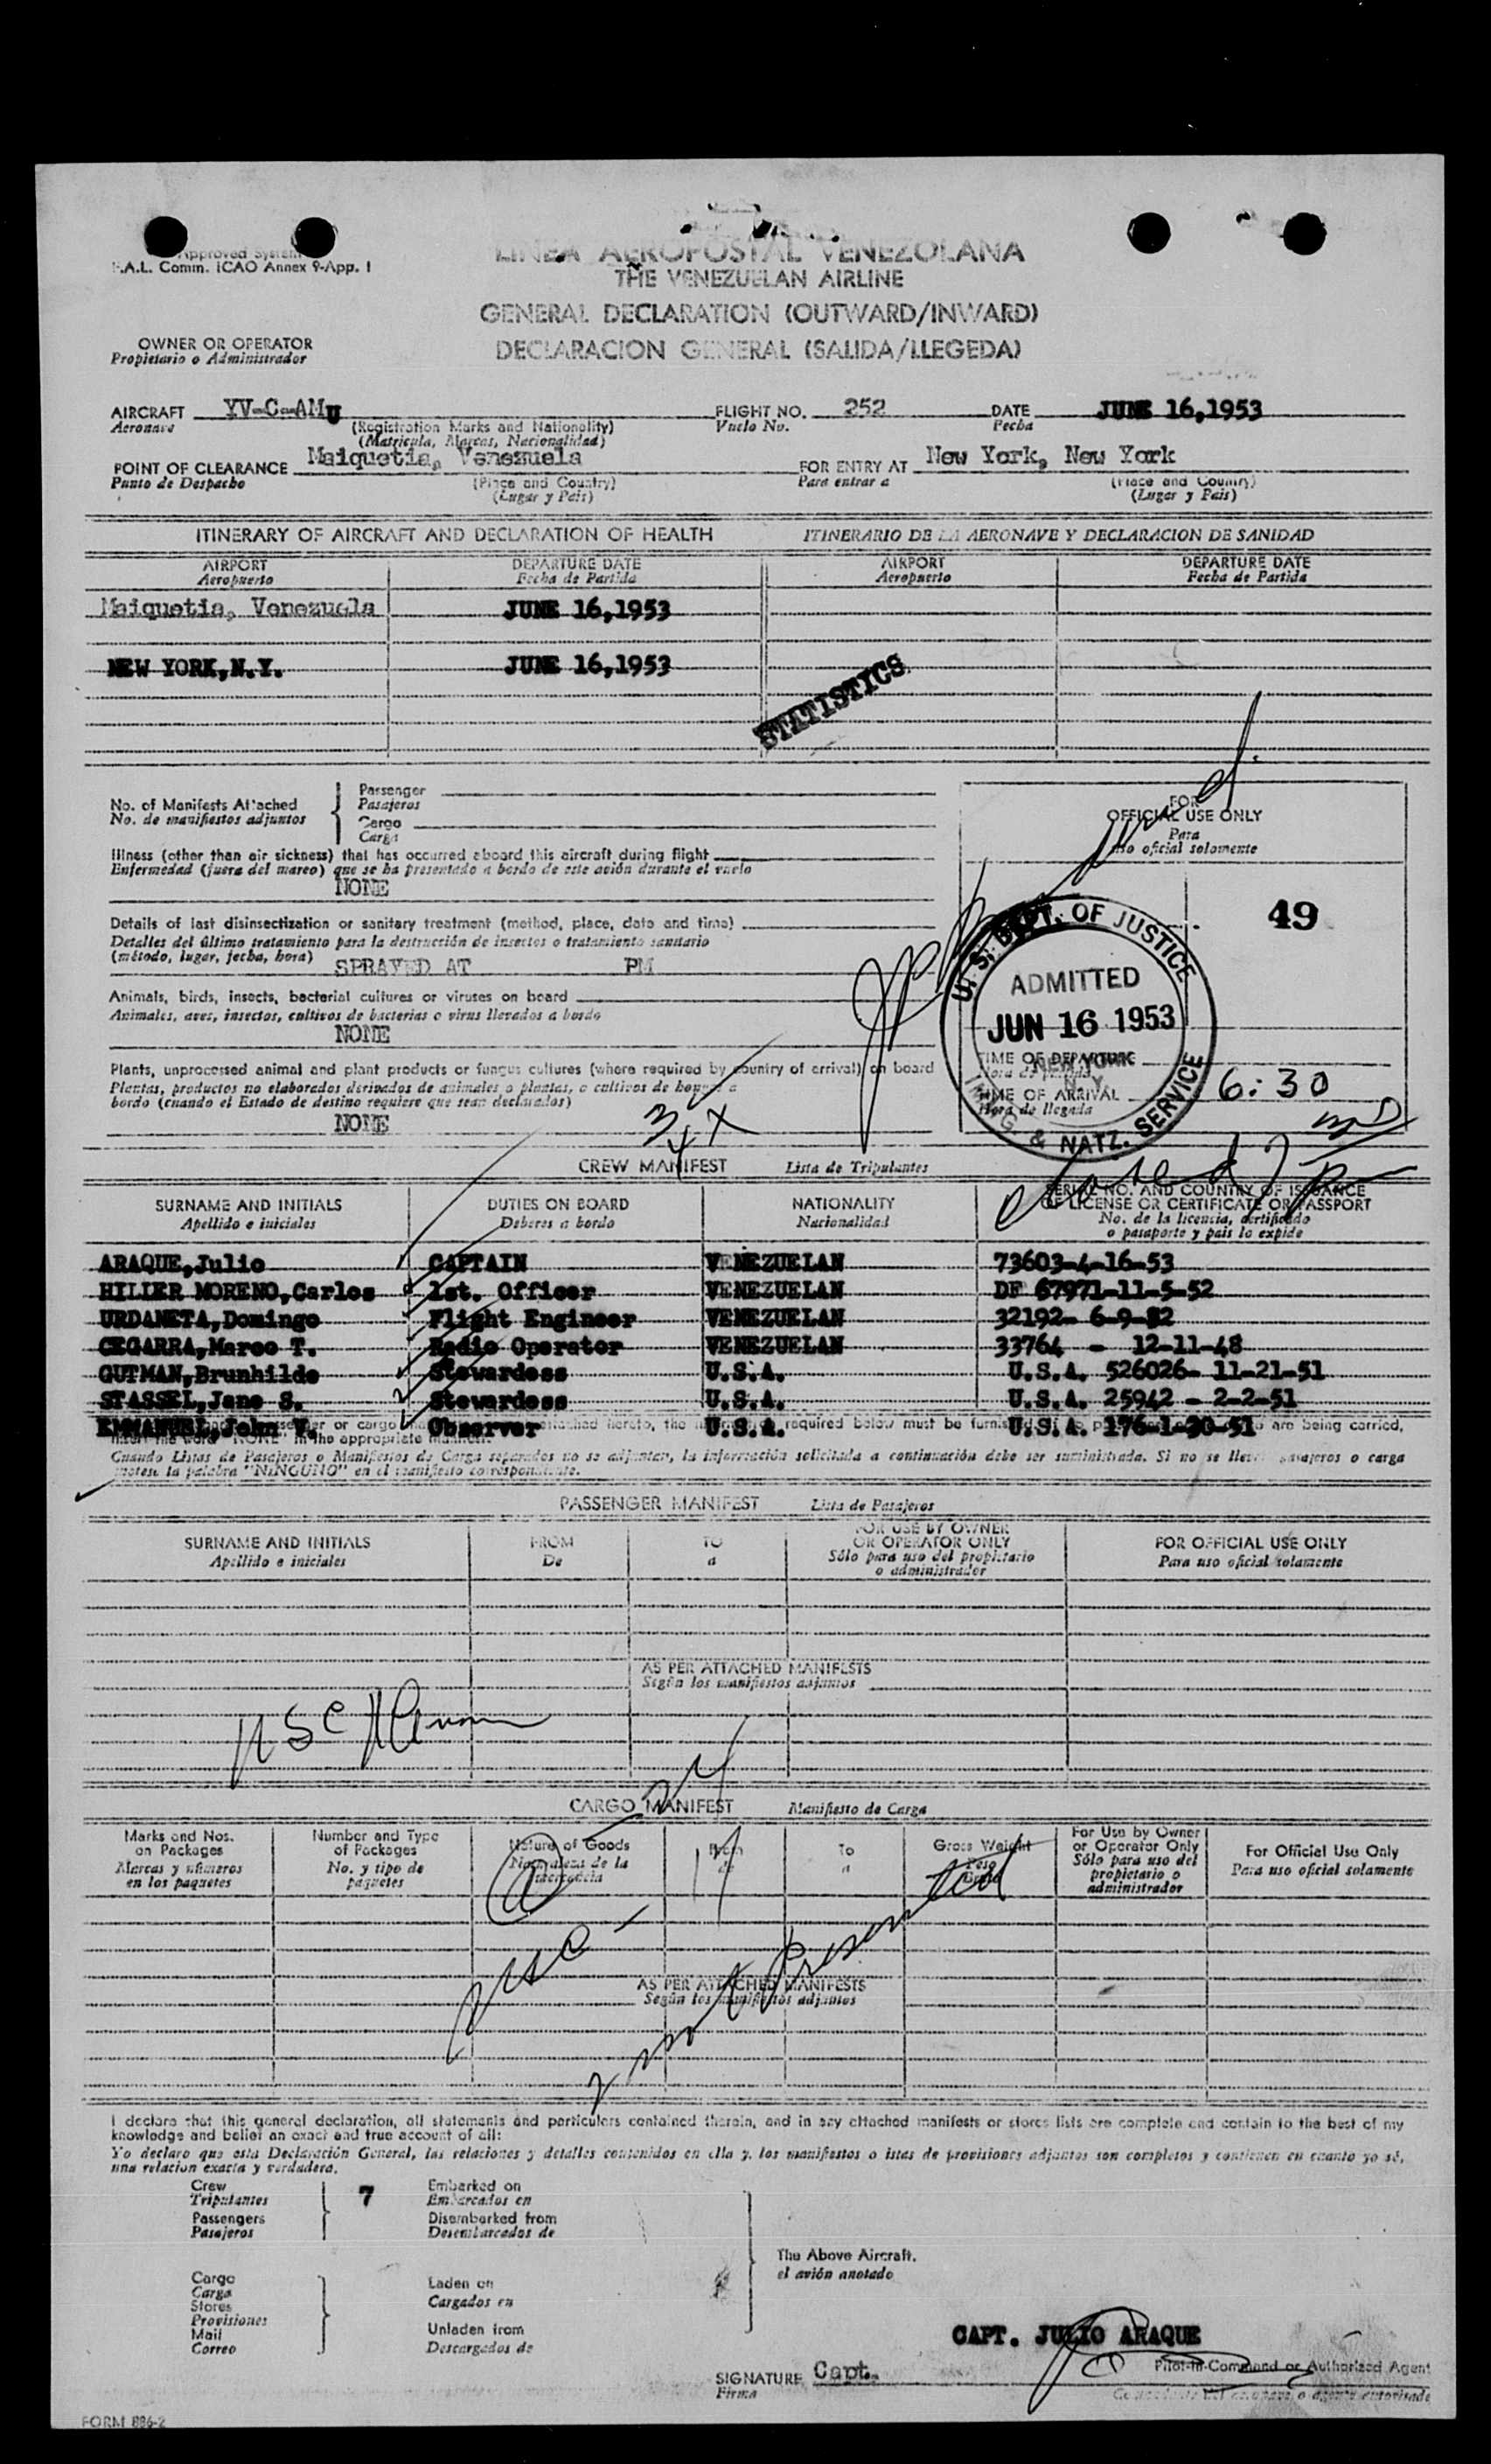 Approved System
F.A.L. Comm. ICAO Annex 9-App. I
LINEA AEROPOSTAL VENEZOLANA
THE VENEZUELAN AIRLINE
GENERAL DECLARATION (OUTWARD/INWARD)
DECLARACION GENERAL (SALIDA/LLEGEDA)
OWNER OR OPERATOR
Propietario o Administrador
AIRCRAFT YV-C-AMU FLIGHT NO. 252 DATE JUNE 16,1953
Aeronave (Registration Marks and Nationality) Vuelo No. Fecha
(Matricula, Marcas, Nacionalidad)
POINT OF CLEARANCE Maiquetia, Venezuela FOR ENTRY AT New York, New York
Punto de Despacho (Place and Country) Para entrar a (Place and Country)
(Lugar y Pais) (Lugar y Pais)
ITINERARY OF AIRCRAFT AND DECLARATION OF HEALTH ITINERARIO DE LA AERONAVE Y DECLARACION DE SANIDAD
AIRPORT DEPARTURE DATE AIRPORT DEPARTURE DATE
Aeropuerto Fecha de Partida Aeropuerto Fecha de Partida
Maiquetia, Venezuela JUNE 16,1953
NEW YORK,N.Y. JUNE 16,1953
STATISTICS
No. of Manifests Attached Passenger
No. de manifiestos adjuntos Pasajeros
Cargo
Carga
FOR
OFFICIAL USE ONLY
Para
uso oficial solamente
Illness (other than air sickness) that has occurred aboard this aircraft during flight
Enfermedad (fuera del mareo) que se ha presentado a bordo de este avión durante el vuelo
NONE
49
Details of last disinsectization or sanitary treatment (method, place, date and time)
Detalles del último tratamiento para la destrucción de insectos o tratamiento sanitario
(método, lugar, fecha, hora) SPRAYED AT PM
U. S. DEPT. OF JUSTICE
ADMITTED
JUN 16 1953
NEW YORK
N. Y.
IMMIG. & NATZ. SERVICE
Animals, birds, insects, bacterial cultures or viruses on board
Animales, aves, insectos, cultivos de bacterias o virus llevados a bordo
NONE
TIME OF DEPARTURE
Hora de
TIME OF ARRIVAL 6:30
Hora de llegada
Plants, unprocessed animal and plant products or fungus cultures (where required by country of arrival) on board
Plantas, productos no elaborados derivados de animales o plantas, o cultivos de hongos a
bordo (cuando el Estado de destino requiere que sean declarados)
NONE
CREW MANIFEST Lista de Tripulantes
SURNAME AND INITIALS DUTIES ON BOARD NATIONALITY SERIAL NO. AND COUNTRY OF ISSUANCE
Apellido e iniciales Deberes a bordo Nacionalidad OF LICENSE OR CERTIFICATE OR PASSPORT
No. de la licencia, certificado
o pasaporte y pais lo expide
ARAQUE,Julio CAPTAIN VENEZUELAN 73603-4-16-53
HILIER MORENO,Carlos 1st. Officer VENEZUELAN DF 67971-11-5-52
URDANETA,Domingo Flight Engineer VENEZUELAN 32192- 6-9-52
CEGARRA,Marco T. Radio Operator VENEZUELAN 33764 - 12-11-48
GUTMAN,Brunhilde Stewardess U.S.A. U.S.A. 526026- 11-21-51
STASSEL,Jane S. Stewardess U.S.A. U.S.A. 25942 - 2-2-51
EMMANUEL,John V. Observer U.S.A. U.S.A. 176-1-30-51
or cargo attached hereto, the required below must be furnished are being carried,
insert the word "NONE" in the appropriate
Cuando Listas de Pasajeros o Manifiestos de Carga separados no se adjuntan, la información solicitada a continuación debe ser suministrada. Si no se llevan pasajeros o carga
anotese la palabra "NINGUNO" en el manifiesto correspondiente.
PASSENGER MANIFEST Lista de Pasajeros
SURNAME AND INITIALS FROM TO FOR USE BY OWNER FOR OFFICIAL USE ONLY
Apellido e iniciales De a OR OPERATOR ONLY Para uso oficial solamente
Sólo para uso del propietario
o administrador
AS PER ATTACHED MANIFESTS
Según los manifiestos adjuntos
CARGO MANIFEST Manifiesto de Carga
Marks and Nos. Number and Type Nature of Goods From To Gross Weight For Use by Owner For Official Use Only
on Packages of Packages Naturaleza de la de a Peso or Operator Only Para uso oficial solamente
Marcas y números No. y tipo de mercancia Sólo para uso del
en los paquetes paquetes propietario o
administrador
not presented
AS PER ATTACHED MANIFESTS
Según los manifiestos adjuntos
I declare that this general declaration, all statements and particulars contained therein, and in any attached manifests or stores lists are complete and contain to the best of my
knowledge and belief an exact and true account of all:
Yo declaro que esta Declaración General, las relaciones y detalles contenidos en ella y. los manifiestos o istas de provisiones adjuntos son completos y contienen en cuanto yo sé,
una relacion exacta y verdadera.
Crew 7 Embarked on
Tripulantes Embarcados en
Passengers Disembarked from
Pasajeros Desembarcados de
The Above Aircraft.
el avión anotado
Cargo Laden on
Carga Cargados en
Stores
Provisiones
Mail Unladen from
Correo Descargados de
CAPT. JULIO ARAQUE
SIGNATURE Capt. Pilot-in-Command or Authorized Agent
Firma
FORM 886-2